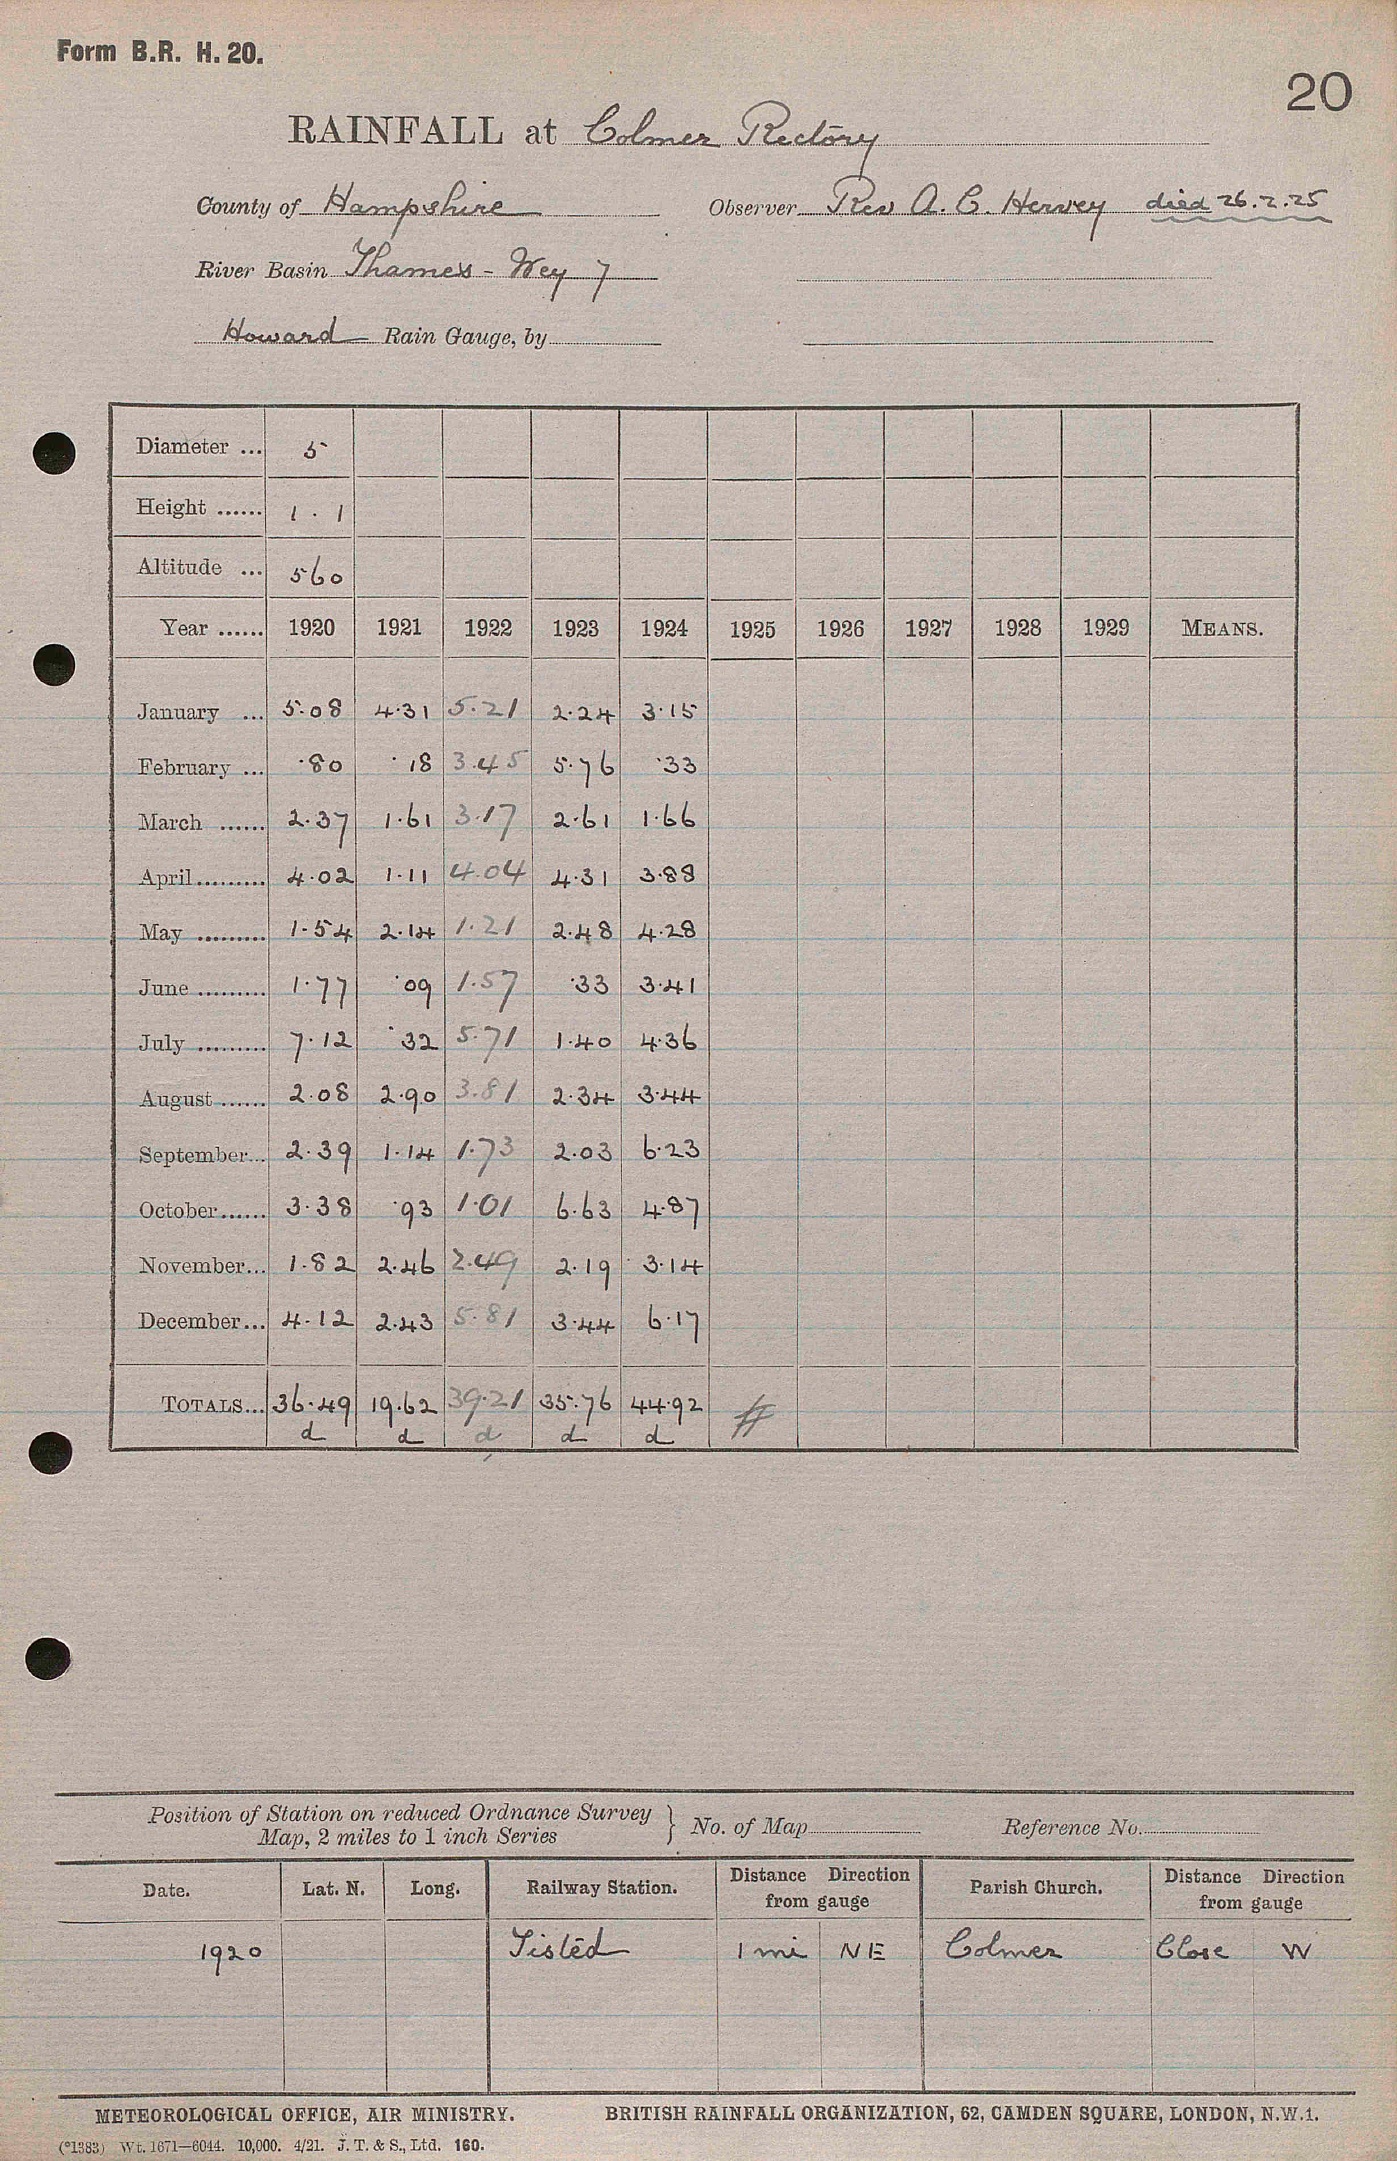 Form B.R. H. 20.
20
RAINFALL at Colmer Rectory
County of Hampshire Observer Rev A. C. Hervey died 26.2.25
River Basin Thames - Wey 7
Howard Rain Gauge, by
Diameter ... 5
Height ...... 1 . 1
Altitude ... 560
Year ...... 1920 1921 1922 1923 1924 1925 1926 1927 1928 1929 MEANS.
January ... 5.08 4.31 5.21 2.24 3.15
February ... .80 .18 3.45 5.76 .33
March ...... 2.37 1.61 3.17 2.61 1.66
April......... 4.02 1.11 4.04 4.31 3.88
May ......... 1.54 2.14 1.21 2.48 4.28
June ......... 1.77 .09 1.57 .33 3.41
July ......... 7.12 .32 5.71 1.40 4.36
August ...... 2.08 2.90 3.81 2.34 3.44
September... 2.39 1.14 1.73 2.03 6.23
October...... 3.38 .93 1.01 6.63 4.87
November... 1.82 2.46 2.49 2.19 3.14
December... 4.12 2.43 5.81 3.44 6.17
TOTALS... 36.49 19.62 39.21 35.76 44.92 #
d d d d d
Position of Station on reduced Ordnance Survey
Map, 2 miles to 1 inch Series } No. of Map Reference No.
Date. Lat. N. Long. Railway Station. Distance Direction from gauge Parish Church. Distance Direction from gauge
1920 Tisted 1 mi NE Colmer Close W
METEOROLOGICAL OFFICE, AIR MINISTRY. BRITISH RAINFALL ORGANIZATION, 62, CAMDEN SQUARE, LONDON, N.W.1.
(*1383) Wt. 1671—6044. 10,000. 4/21. J. T. & S., Ltd. 160.